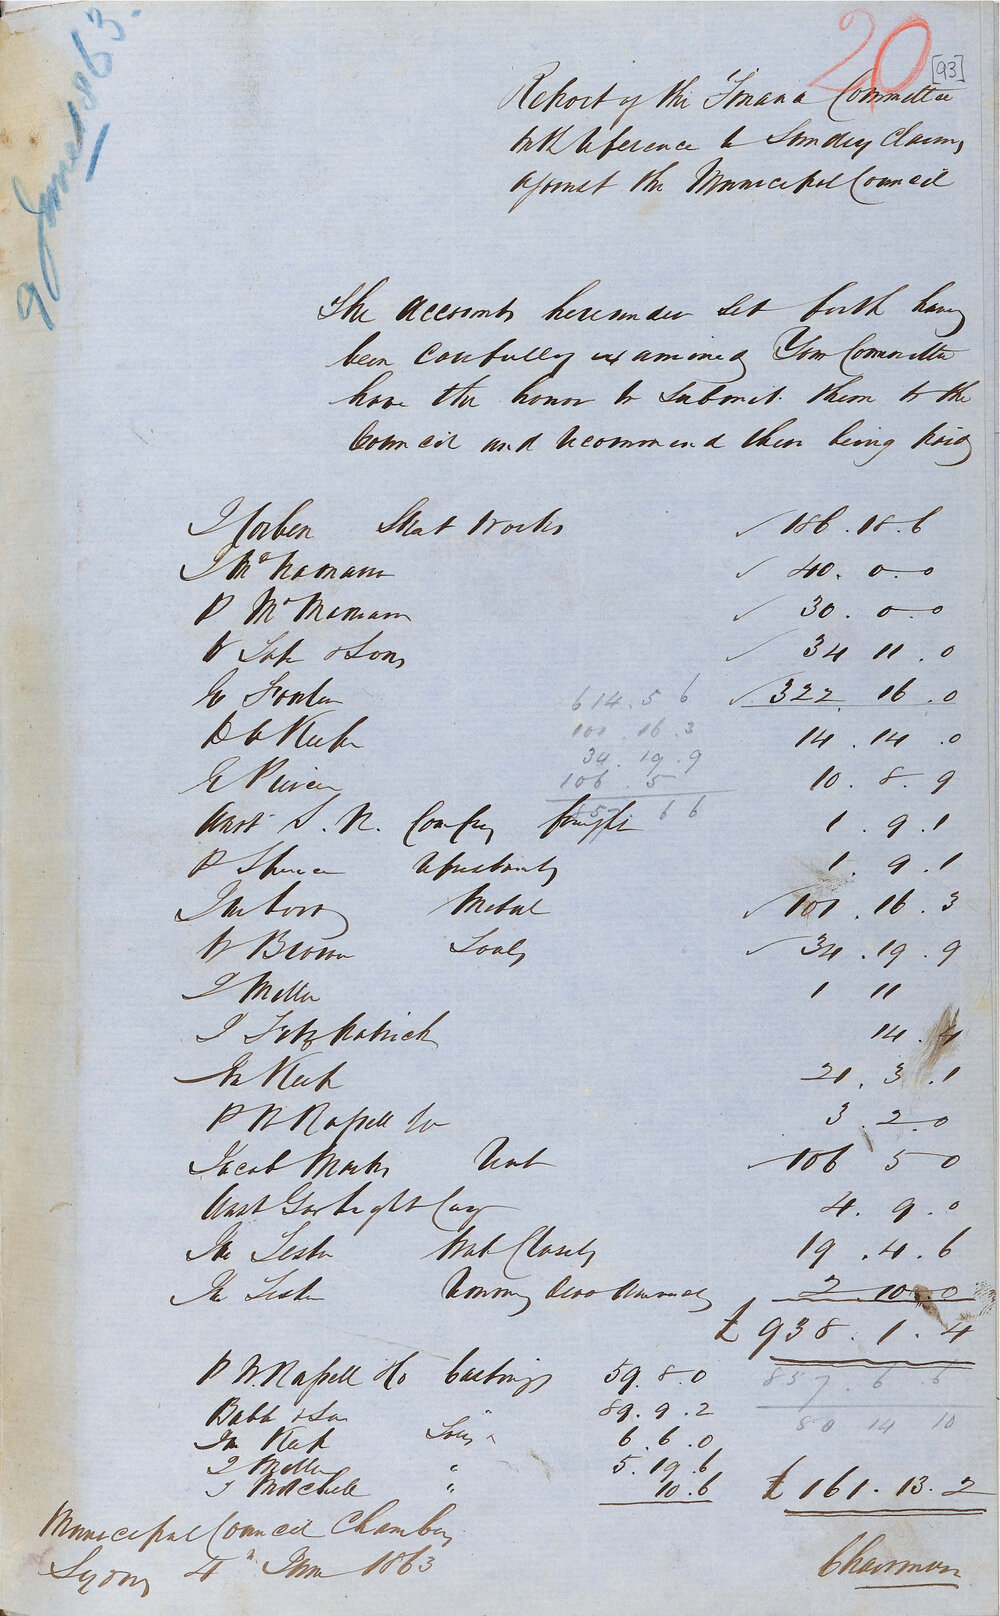 9 June 1863.
20
[93]
Report of the Finance Committee
with reference to Sundry Claims
against the Municipal Council
The Accounts hereunder set forth having
been carefully examined Your Committee
have the honor to submit them to the
Council and recommend their being paid
J Corben Street Works 186.18.6
J McNamara 40.0.0
P McNamara 30.0.0
W & Sons 34 11.0
322 16.0
614.5 6
14.14.0
101.16.3
34.19.9
E Pierce 10.8.9
106.5
Aust S. N. Compy freight 1.9.1
857 6 6
P Spence 1.9.1
Metal 101.16.3
W Brown Tools 34.19.9
J Miller 1 11
J Fitzpatrick 14.4
Jn Keep 21.3.1
P N Russell & Co 3.2.0
Jacob Marks Rent 106 5 0
Aust Gas Light Coy 4.9.0
Jn Lester Water Closets 19.4.6
Jn Lester 2.10.0
£938.1.4
P N Russell & Co Castings 59.8.0
857.6 6
Bubb & Son " 89.9.2
80 14 10
Jn Keep Tools 6.6.0
J Miller " 5.19.6
J Mitchell " 10.6
£161.13.2
Municipal Council Chambers
Sydney 4th June 1863
Chairman